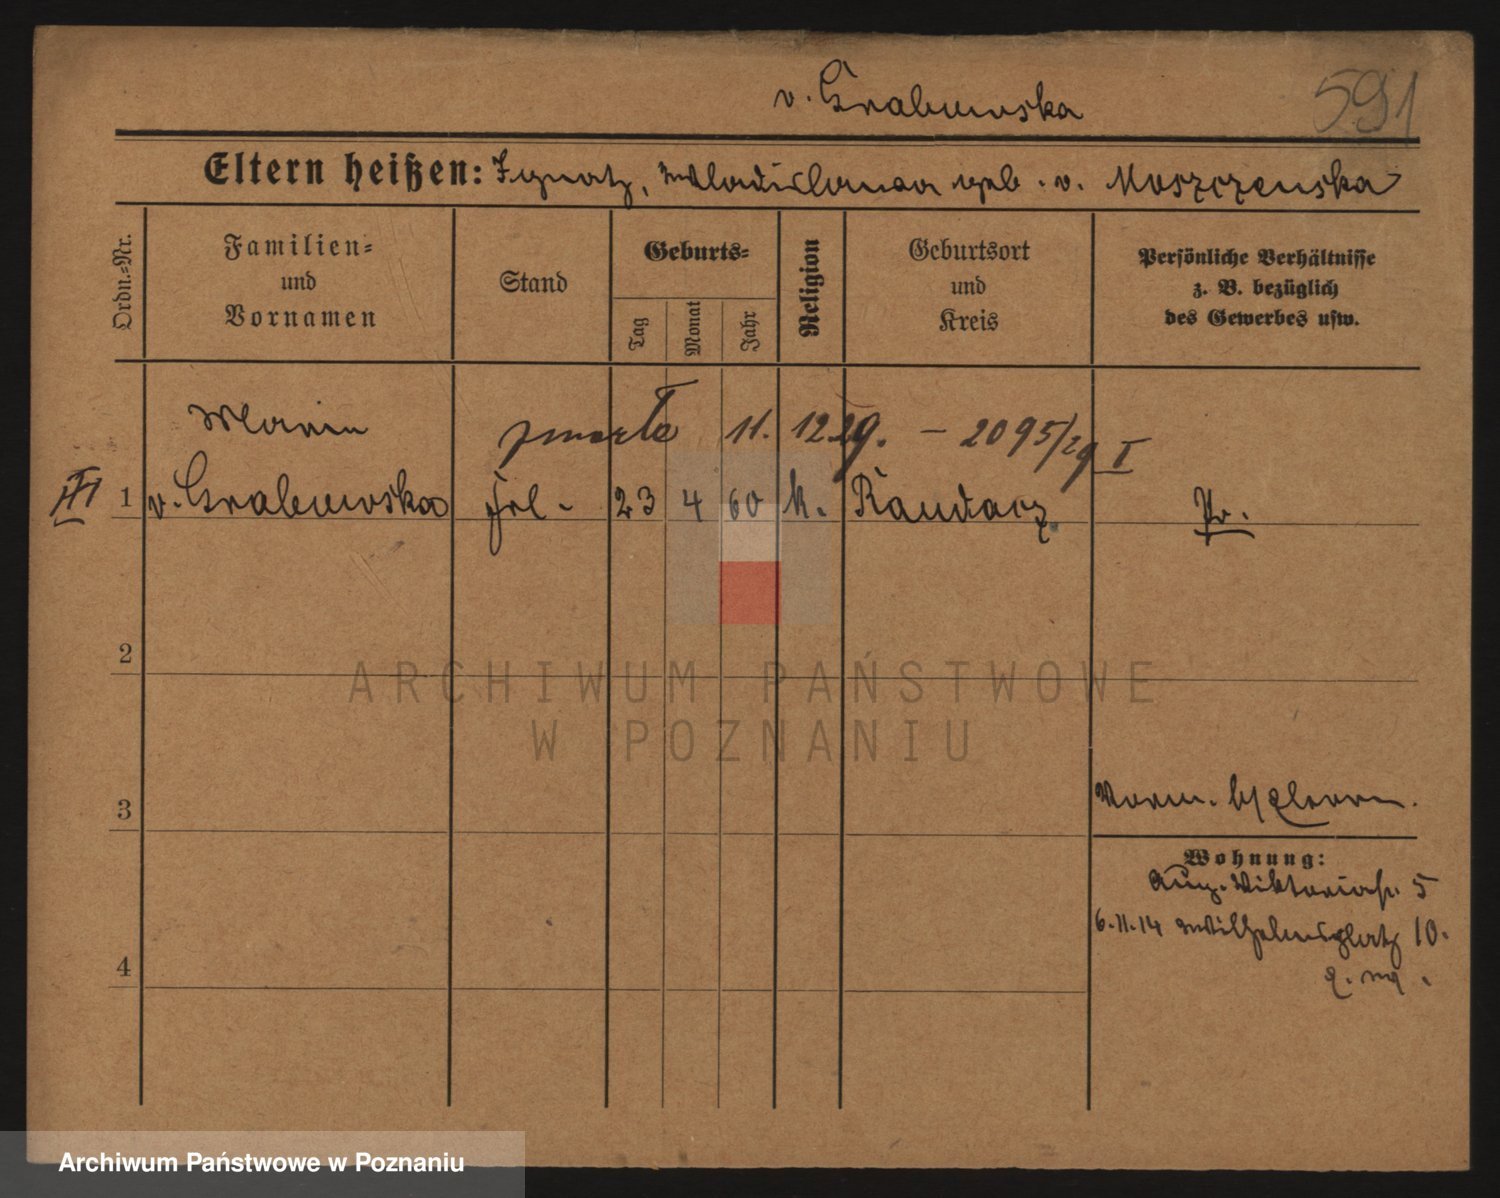 v. Grabowska
591
Eltern heißen: Ignatz, Wladislawa geb. v. Moszczenska
Ordn.=Nr.
Familien=
und
Vornamen
Stand
Geburts=
Tag
Monat
Jahr
Religion
Geburtsort
und
Kreis
Persönliche Verhältnisse
z. B. bezüglich
des Gewerbes usw.
Maria
zmarła 11. 12. 29. – 2095/29 I
III 1 v. Grabowska Frl. 23 4 60 k. Pr.
2
ARCHIWUM PAŃSTWOWE
W POZNANIU
3
Wohnung:
Aug. Viktoriastr. 5
4
6.11.14 Wilhelmsplatz 10.
Archiwum Państwowe w Poznaniu